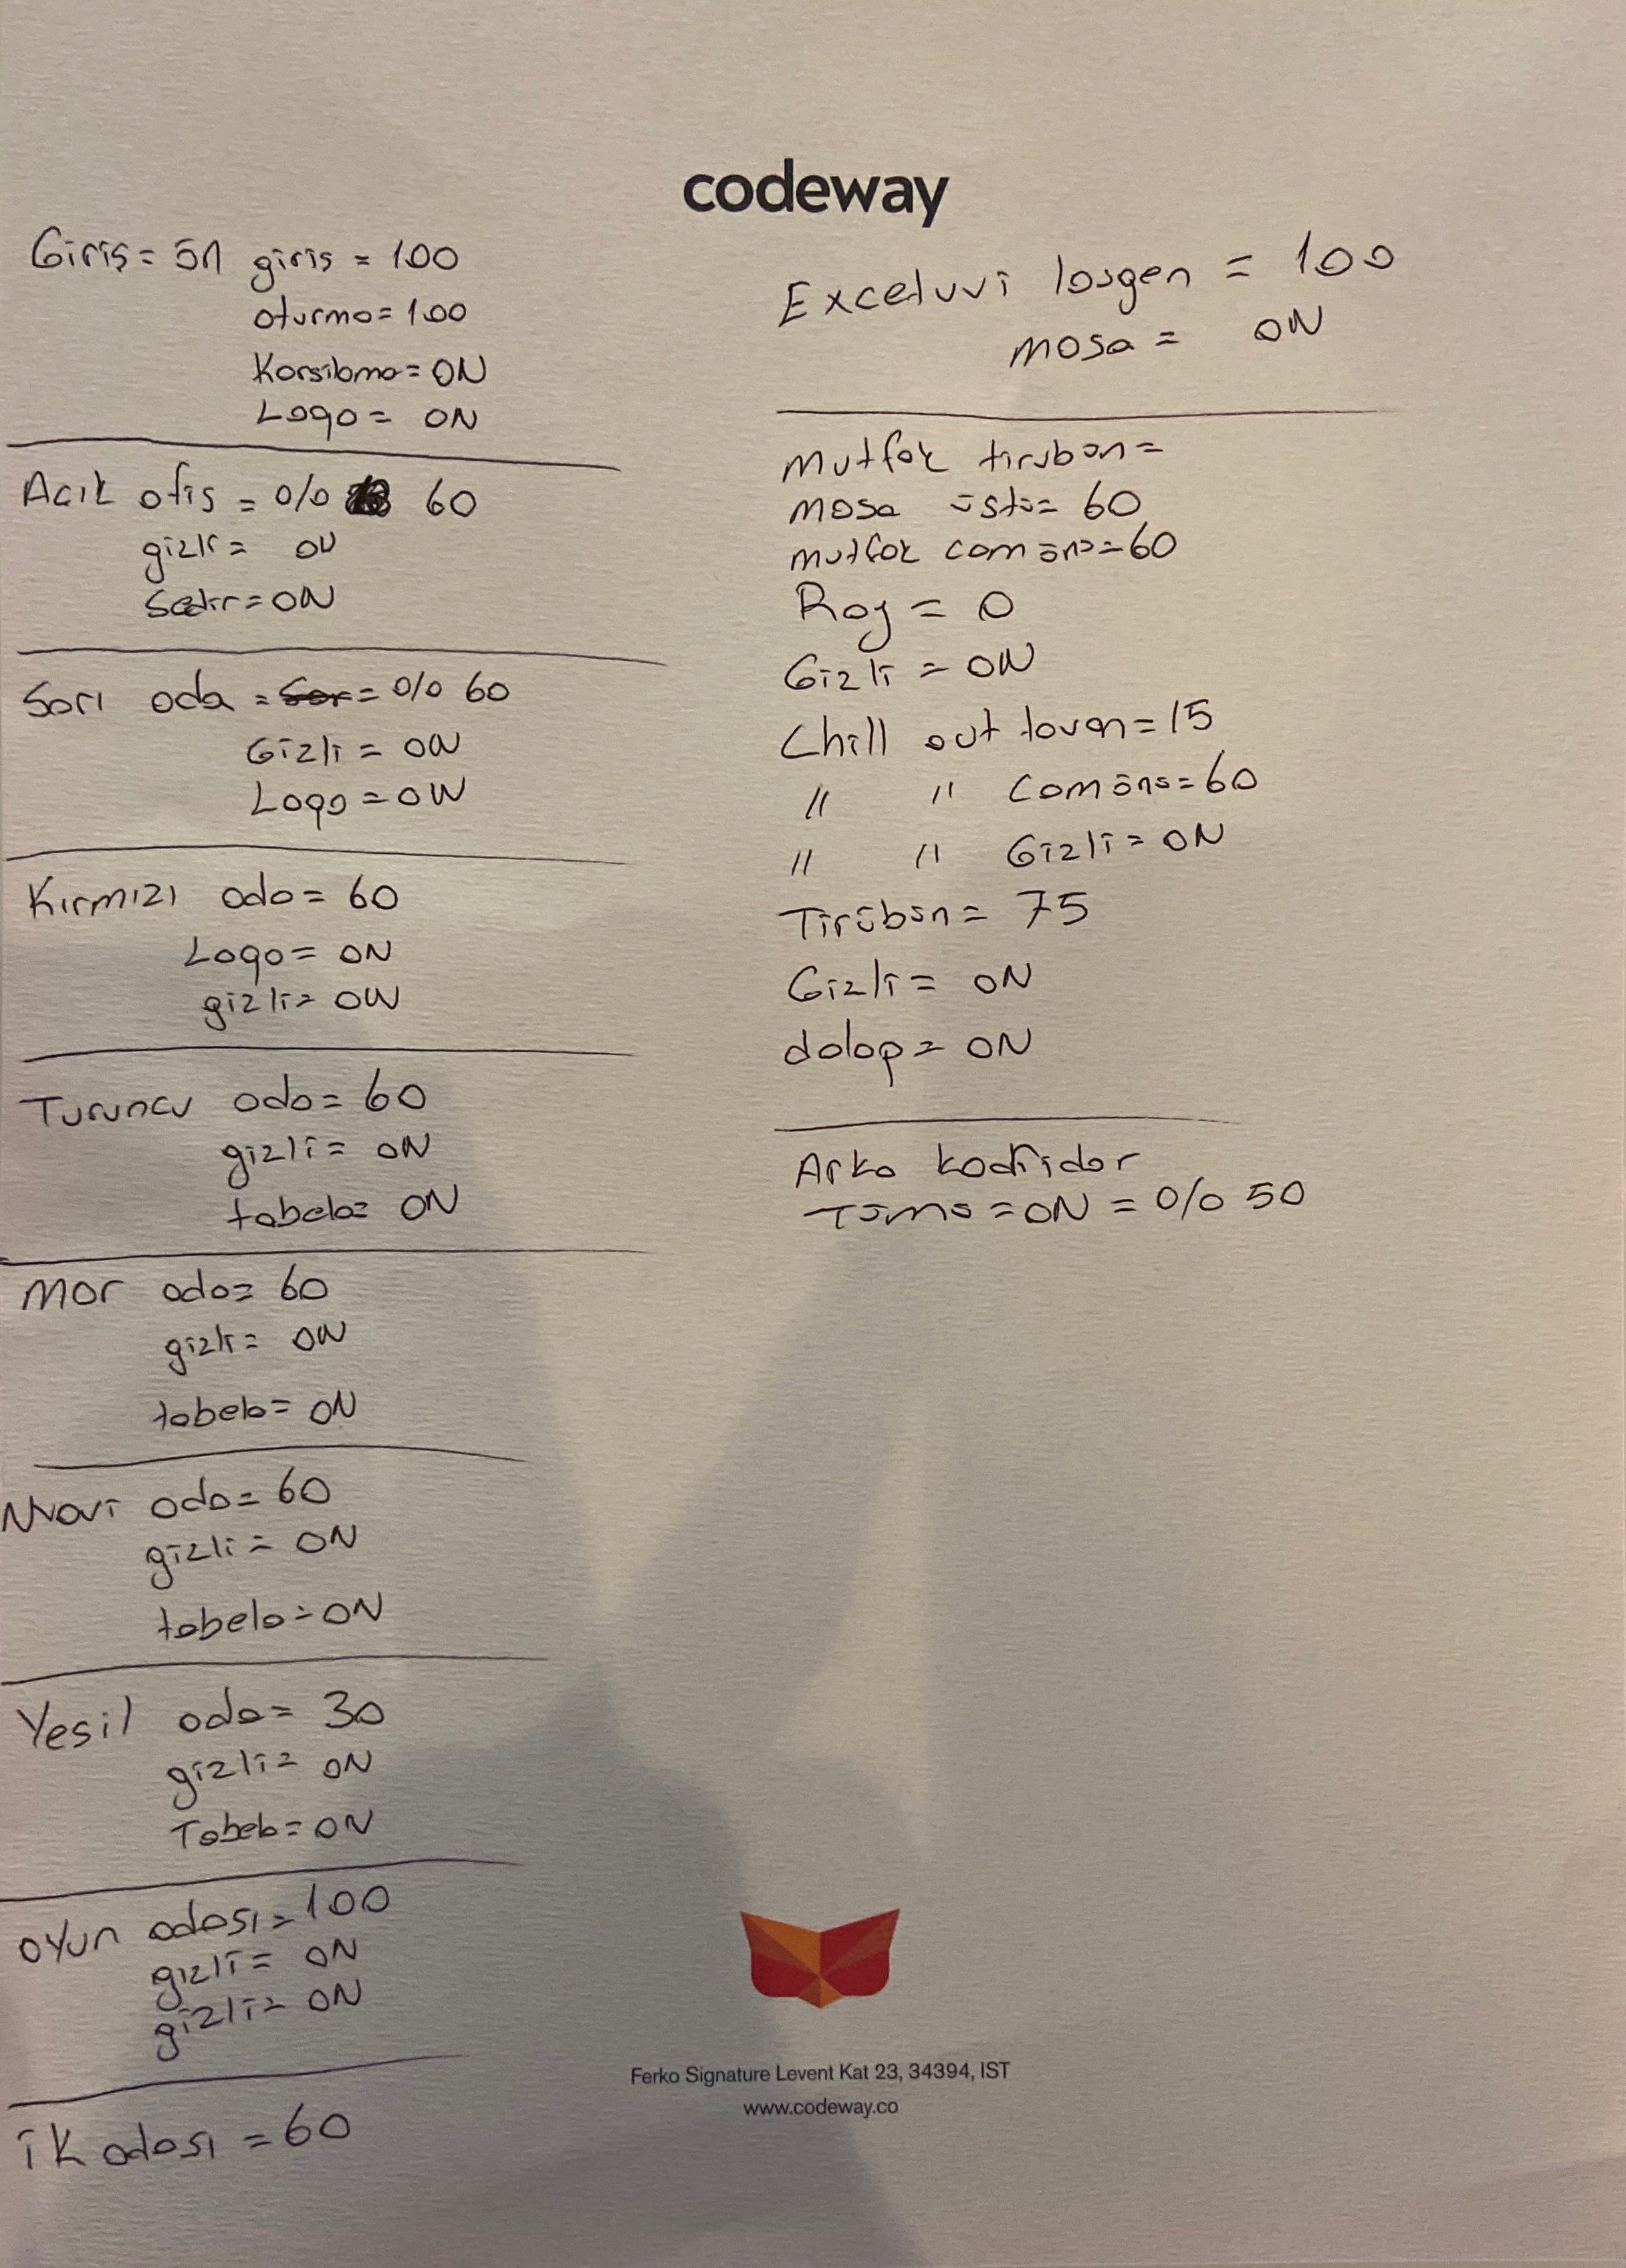 codeway
Giriş = ön giriş = 100
oturma = 100
Karşılama = ON
Logo = ON
Acık ofis = 0/0 60
gizli = ON
Sedir = ON
Sarı oda = Sar = 0/0 60
Gizli = ON
Logo = ON
Kırmızı oda = 60
Logo = ON
gizli = ON
Turuncu oda = 60
gizli = ON
tabela = ON
Mor oda = 60
gizli = ON
tabela = ON
Mavi oda = 60
gizli = ON
tabela = ON
Yesil oda = 30
gizli = ON
Tabela = ON
oyun odası = 100
gizli = ON
gizli = ON
ik odası = 60
Exceluvi losgen = 100
masa = ON
Mutfak tirübün =
masa üstü = 60
mutfak cam önü = 60
Ray = 0
Gizli = ON
Chill out tavan = 15
" " Cam önü = 60
" " Gizli = ON
Tirübün = 75
Gizli = ON
dolap = ON
Arka kodridor
= ON = 0/0 50
Ferko Signature Levent Kat 23, 34394, IST
www.codeway.co